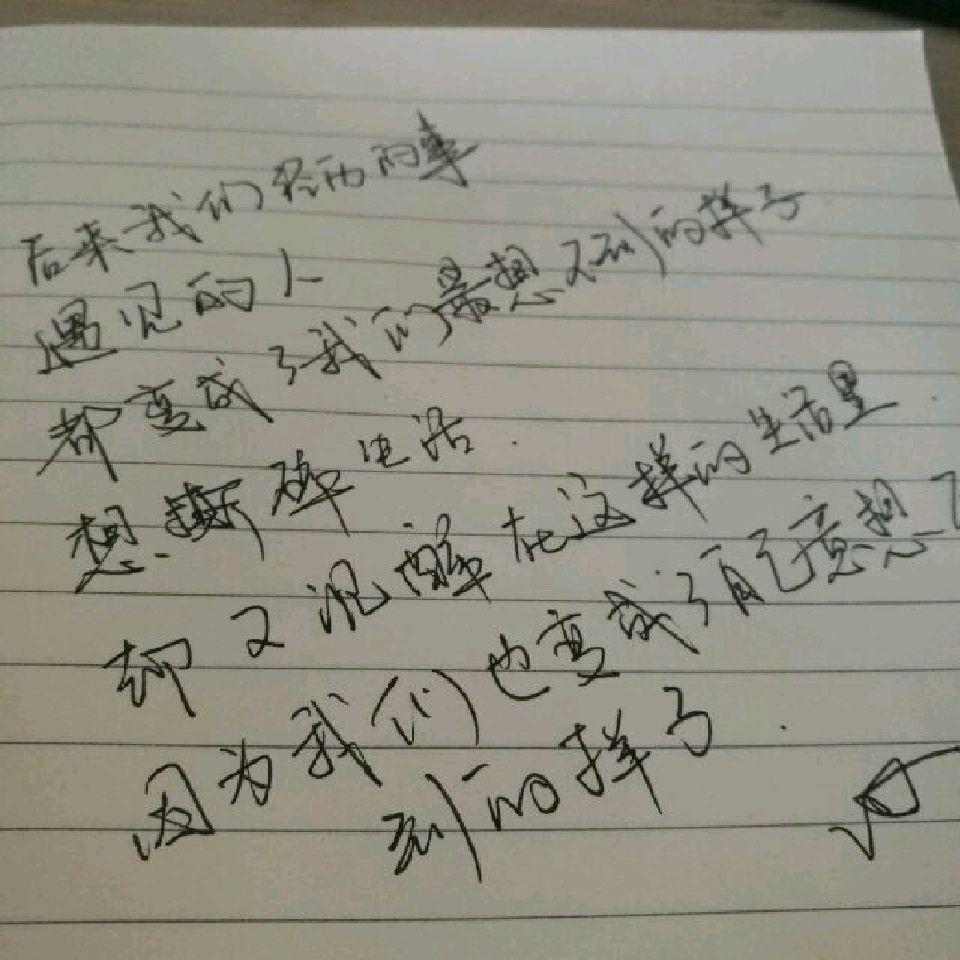 后来我们经历的事
遇见的人
都变成了我们最想不到的样子
想撕碎生活.
却又混 在这样的生活里.
因为我们也变成了自己意想不
到的样子.